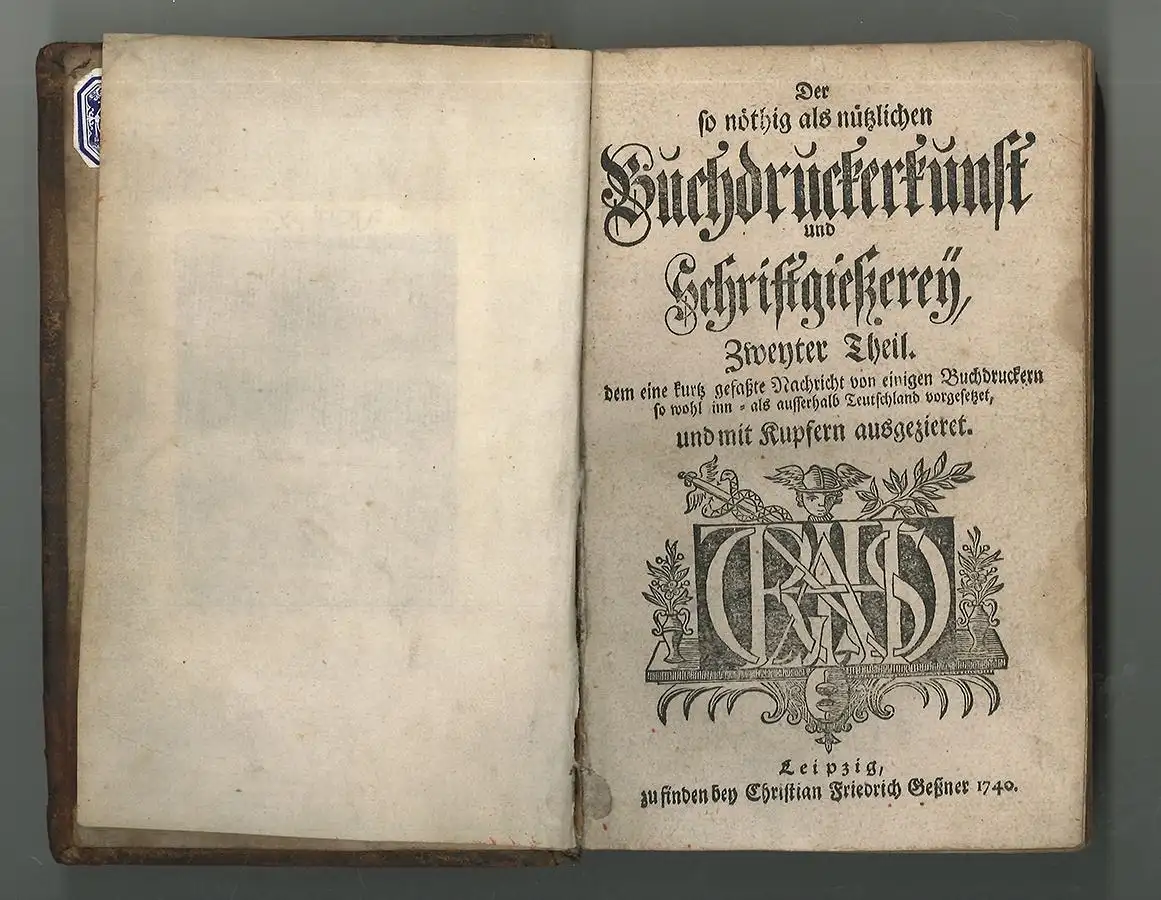 Der
so nöthig als nützlichen
Buchdruckerkunst
und
Schriftgießereÿ,
Zweyter Theil.
dem eine kurtz gefaßte Nachricht von einigen Buchdruckern
so wohl inn - als ausserhalb Teutschland vorgesetzet,
und mit Kupfern ausgezieret.
Leipzig,
zu finden bey Christian Friedrich Geßner 1740.